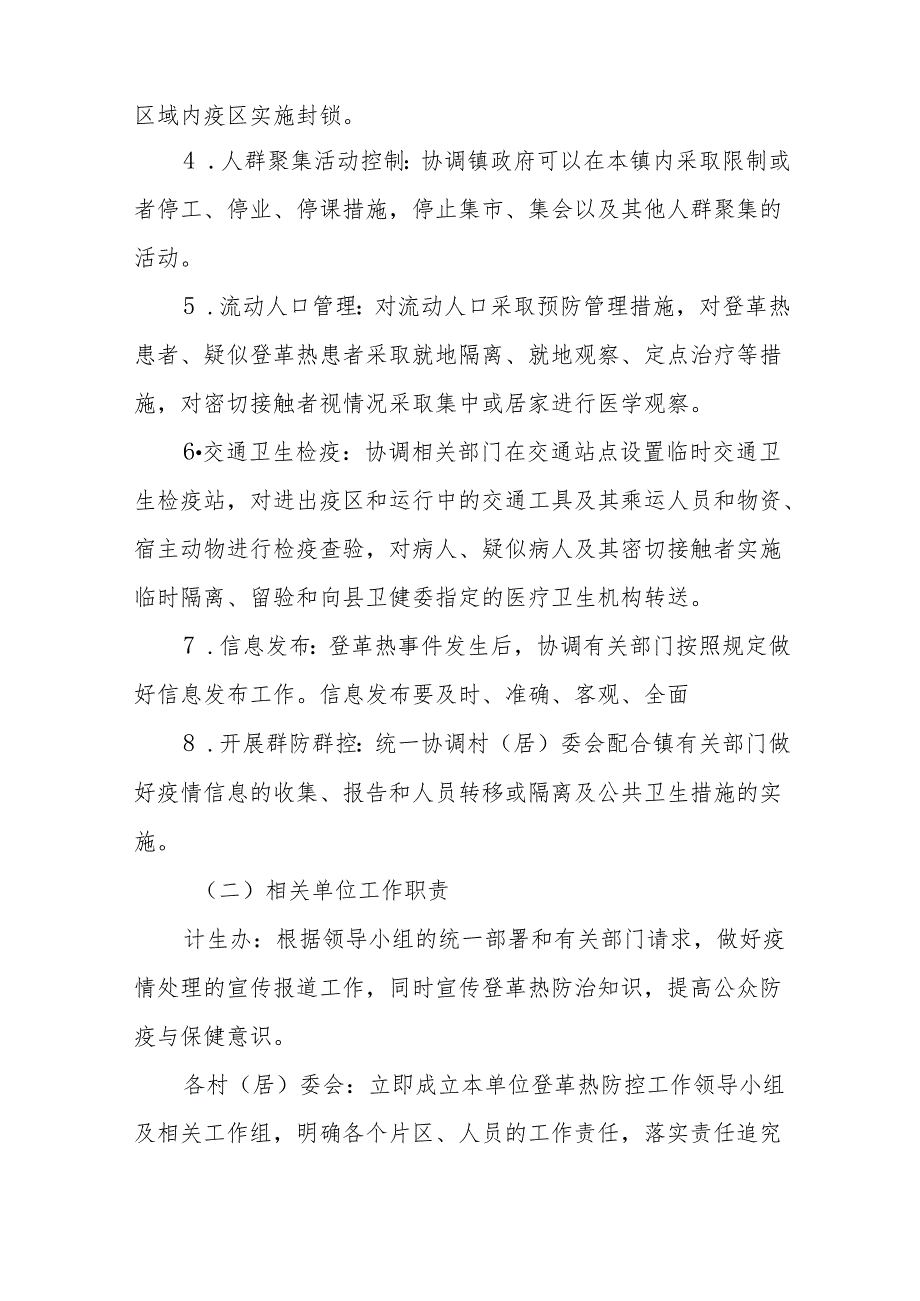 区域内疫区实施封锁。
4 .人群聚集活动控制: 协调镇政府可以在本镇内采取限制或
者停工、停业、停课措施，停止集市、集会以及其他人群聚集的
活动。
5 .流动人口管理: 对流动人口采取预防管理措施，对登革热
患者、疑似登革热患者采取就地隔离、就地观察、定点治疗等措
施，对密切接触者视情况采取集中或居家进行医学观察。
6•交通卫生检疫: 协调相关部门在交通站点设置临时交通卫
生检疫站，对进出疫区和运行中的交通工具及其乘运人员和物资、
宿主动物进行检疫查验，对病人、疑似病人及其密切接触者实施
临时隔离、留验和向县卫健委指定的医疗卫生机构转送。
7 .信息发布: 登革热事件发生后，协调有关部门按照规定做
好信息发布工作。信息发布要及时、准确、客观、全面
8 .开展群防群控: 统一协调村（居）委会配合镇有关部门做
好疫情信息的收集、报告和人员转移或隔离及公共卫生措施的实
施。
（二）相关单位工作职责
计生办: 根据领导小组的统一部署和有关部门请求，做好疫
情处理的宣传报道工作，同时宣传登革热防治知识，提高公众防
疫与保健意识。
各村（居）委会: 立即成立本单位登革热防控工作领导小组
及相关工作组，明确各个片区、人员的工作责任，落实责任追究